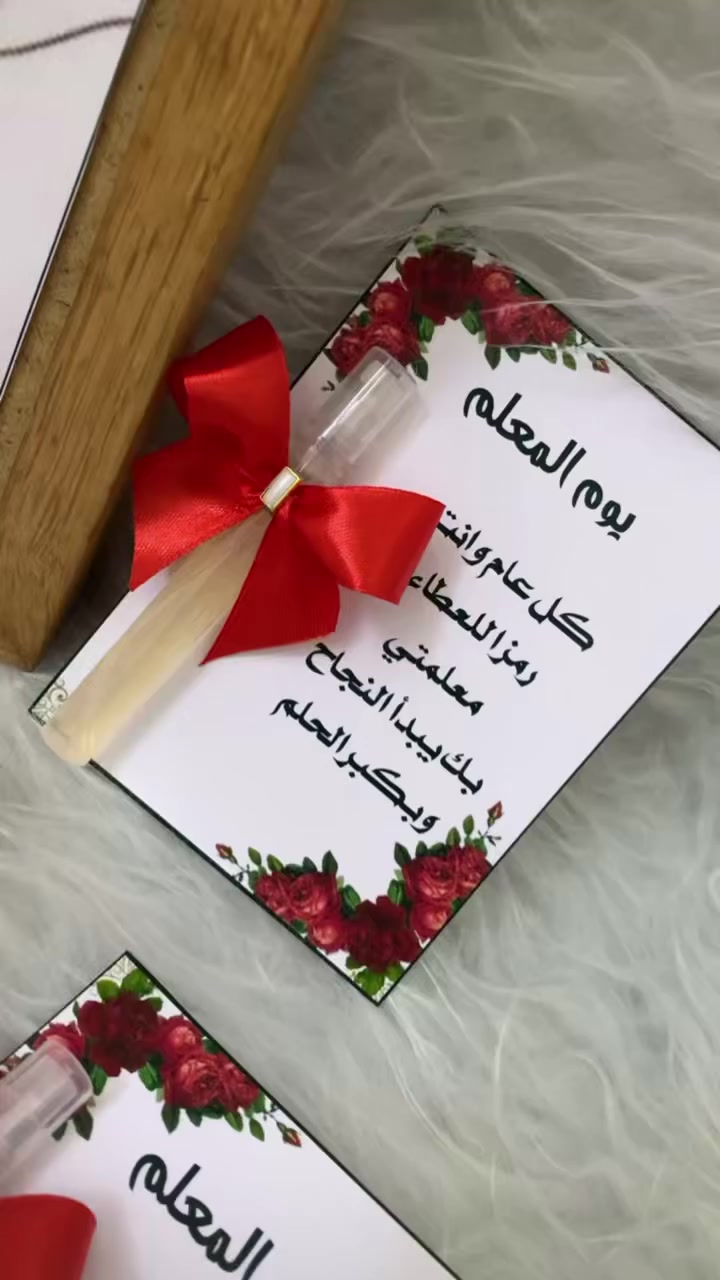 يوم المعلم
كل عام وانت
رمز اللعطاء
معلمتي
بك يبدأ النجاح
وبكبر الحلم
المعلم